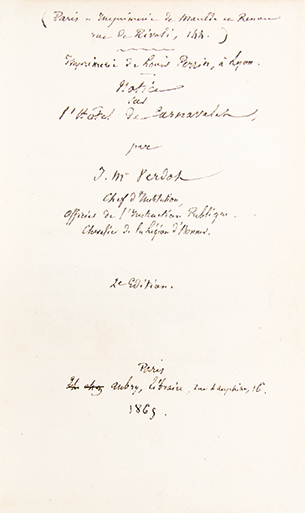 ( Paris — Imprimerie de Maulde et Renou
rue de Rivoli, 144. )
Imprimerie de Louis Perrin, à Lyon.
Notice
sur
l'Hôtel de Carnavalet,
par
J. Mr Verdot
Chef d'Institution,
Officier de l'Instruction Publique.
Chevalier de la Légion d'Honneur.
2e Edition.
Paris
chez Aubry, libraire, rue Dauphine, 16.
1865.